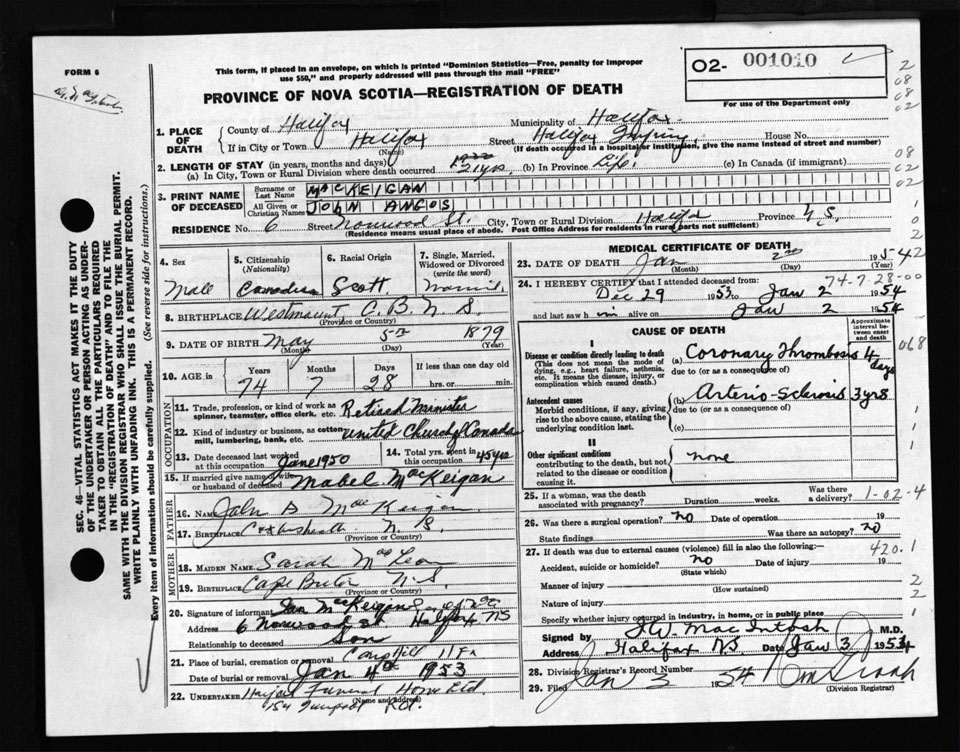 FORM 6
This form, if placed in an envelope, on which is printed "Dominion Statistics—Free, penalty for improper
use $50," and properly addressed will pass through the mail "FREE"
PROVINCE OF NOVA SCOTIA—REGISTRATION OF DEATH
O2- 001010
For use of the Department only
1. PLACE OF DEATH
County of Halifax Municipality of Halifax
If in City or Town Halifax Street Halifax Infirmary House No.
(Name) (If death occurred in a hospital or institution, give the name instead of street and number)
2. LENGTH OF STAY (in years, months and days)
(a) In City, Town or Rural Division where death occurred 21 yrs (b) In Province Life (c) In Canada (if immigrant)
3. PRINT NAME OF DECEASED
Surname or Last Name MACKEIGAN
All Given or Christian Names JOHN ANGUS
RESIDENCE No. 6 Street Norwood St. City, Town or Rural Division Halifax Province N S.
(Residence means usual place of abode. Post Office Address for residents in rural parts not sufficient)
4. Sex Male
5. Citizenship (Nationality) Canadian
6. Racial Origin Scott
7. Single, Married, Widowed or Divorced (write the word)
8. BIRTHPLACE Westmount C. B. N. S.
(Province or Country)
9. DATE OF BIRTH May 5th 1879
(Month) (Day) (Year)
10. AGE in Years Months Days If less than one day
74 7 28 hrs. or min.
OCCUPATION
11. Trade, profession, or kind of work as spinner, teamster, office clerk, etc. Retired Minister
12. Kind of industry or business, as cotton mill, lumbering, bank, etc. United Church of Canada
13. Date deceased last worked at this occupation June 1950
14. Total yrs. spent in this occupation 45 yrs
15. If married give name of wife or husband of deceased Mabel MacKeigan
FATHER
16. NAME John D MacKeigan
17. BIRTHPLACE N. S.
(Province or Country)
MOTHER
18. MAIDEN NAME Sarah Mac Lean
19. BIRTHPLACE Cape Breton N-S
(Province or Country)
20. Signature of informant Ian MacKeigan
Address 6 Norwood St Halifax NS
Relationship to deceased Son
21. Place of burial, cremation or removal Camp Hill Hfx
Date of burial or removal Jan 4th 1953
22. UNDERTAKER Funeral Home Ltd.
(Name and Address)
MEDICAL CERTIFICATE OF DEATH
23. DATE OF DEATH Jan 2nd 195
(Month) (Day) (Year)
74-7-28-00
24. I HEREBY CERTIFY that I attended deceased from:
Dec 29 1953 to Jan 2 1954
and last saw h im alive on Jan 2 1954
CAUSE OF DEATH
Approximate interval between onset and death
I
Disease or condition directly leading to death
(This does not mean the mode of dying, e.g., heart failure, asthenia, etc. It means the disease, injury, or complication which caused death.)
(a) Coronary Thrombosis 4 days
due to (or as a consequence of)
Antecedent causes
Morbid conditions, if any, giving rise to the above cause, stating the underlying condition last.
(b) Arterio-Sclerosis 3 yrs
due to (or as a consequence of)
(c)
II
Other significant conditions
contributing to the death, but not related to the disease or condition causing it.
none
25. If a woman, was the death associated with pregnancy? Duration weeks. Was there a delivery? 1-02-4
26. Was there a surgical operation? no Date of operation 19
State findings Was there an autopsy? no
27. If death was due to external causes (violence) fill in also the following:— 420.1
Accident, suicide or homicide? no Date of injury 19
(State which)
Manner of injury
(How sustained)
Nature of injury
Specify whether injury occurred in industry, in home, or in public place
Signed by MacIntosh M.D.
Address Halifax NS Date Jan 3 1954
28. Division Registrar's Record Number
29. Filed Jan 3 1954
(Division Registrar)
SEC. 46—VITAL STATISTICS ACT MAKES IT THE DUTY
OF THE UNDERTAKER OR PERSON ACTING AS UNDER-
TAKER TO OBTAIN ALL THE PARTICULARS REQUIRED
IN THE "REGISTRATION OF DEATH" AND TO FILE THE
SAME WITH THE DIVISION REGISTRAR WHO SHALL ISSUE THE BURIAL PERMIT.
WRITE PLAINLY WITH UNFADING INK. THIS IS A PERMANENT RECORD.
Every item of information should be carefully supplied. (See reverse side for instructions.)